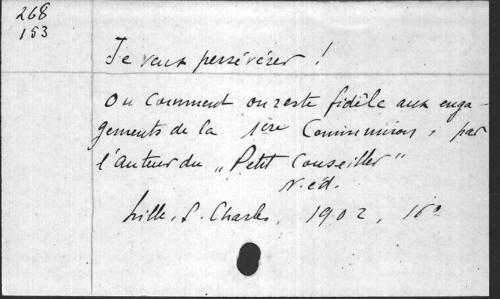 268
153
Je veux persévérer !
Ou comment on reste fidèle aux enga-
gements de la 1ère Communion, par
l'auteur du „Petit Conseiller"
N. éd.
Lille, S. Charles, 1902, 16°